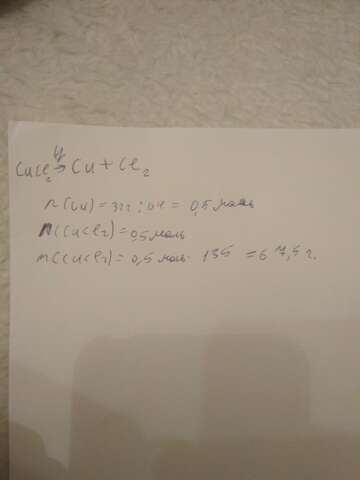 CuCl₂ э→ Cu + Cl₂
n(Cu) = 32г : 64 = 0,5 моль
n(CuCl₂) = 0,5 моль
m(CuCl₂) = 0,5 моль · 135 = 67,5 г.